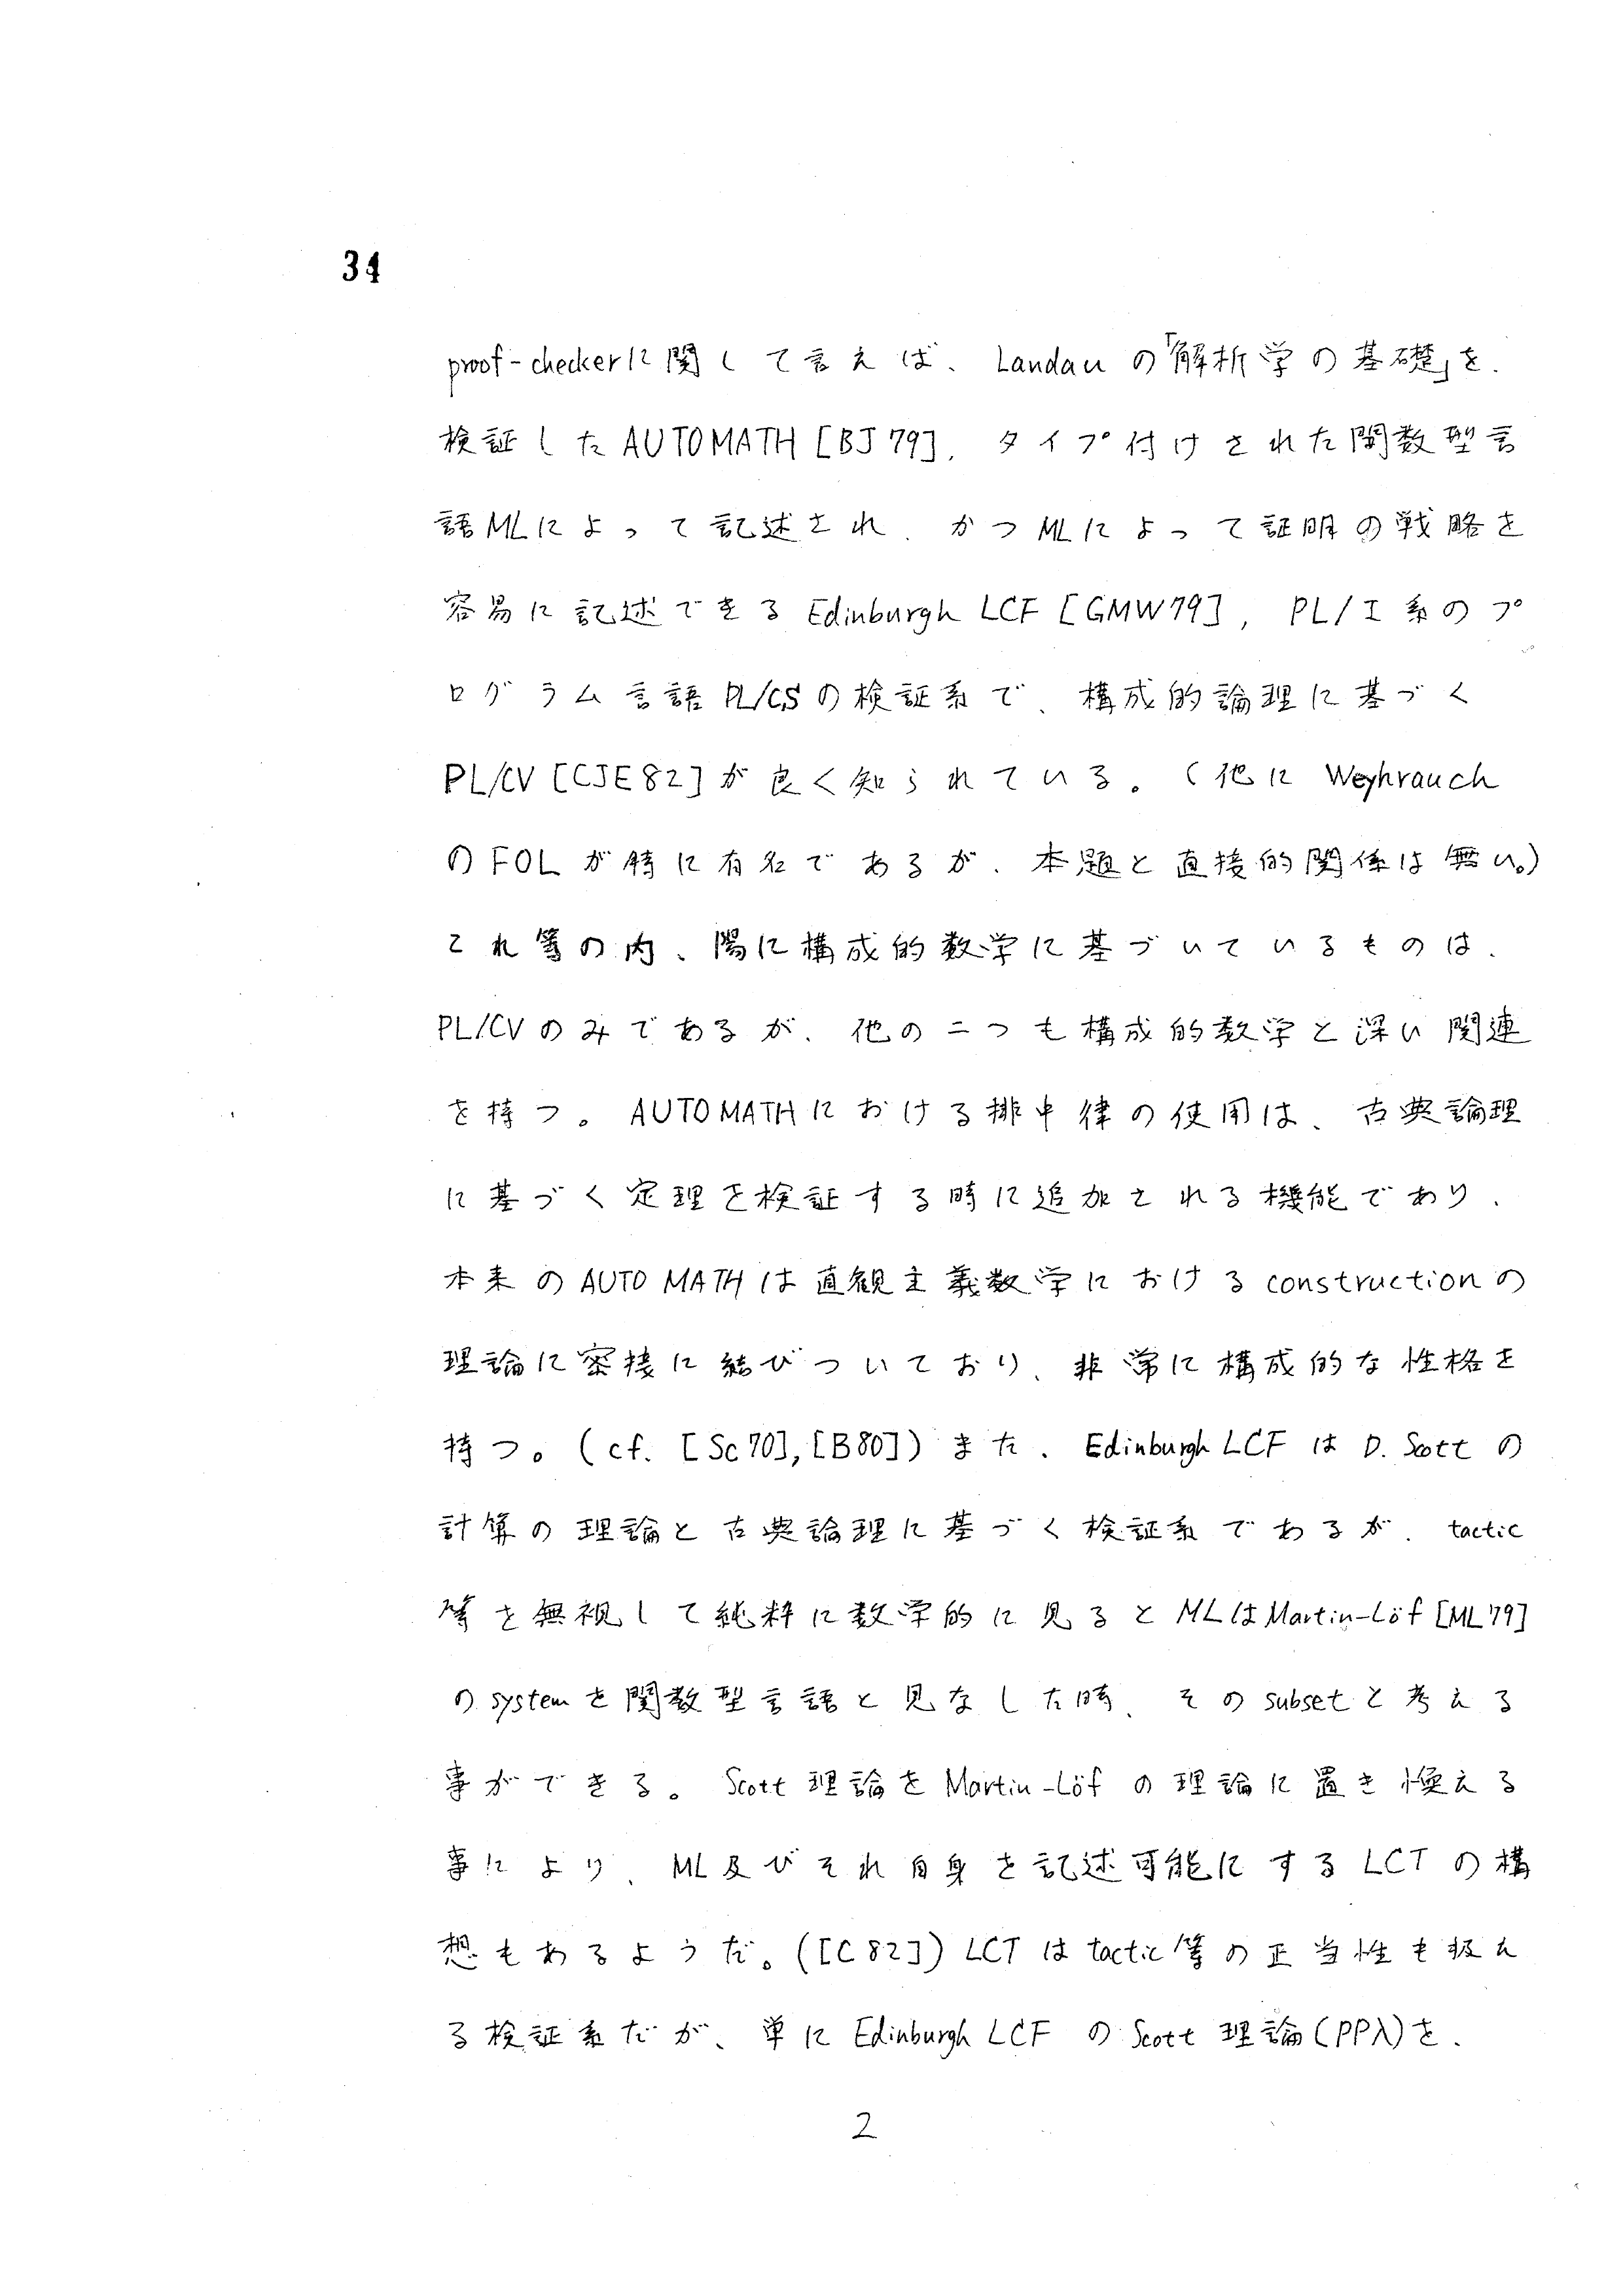 34
proof-checkerに関して言えば、Landauの「解析学の基礎」を、
検証したAUTOMATH[BJ79]、タイプ付けされた関数型言
語MLによって記述され、かつMLによって証明の戦略を
容易に記述できるEdinburgh LCF[GMW79], PL/I系のプ
ログラム言語PL/CSの検証系で、構成的論理に基づく
PL/CV[CJE82]が良く知られている。(他にWeyhrauch
のFOLが特に有名であるが、本題と直接的関係は無い。)
これ等の内、陽に構成的数学に基づいているものは、
PL/CVのみであるが、他の二つも構成的数学と深い関連
を持つ。AUTOMATHにおける排中律の使用は、古典論理
に基づく定理を検証する時に追加される機能であり、
本来のAUTOMATHは直観主義数学におけるconstructionの
理論に密接に結びついており、非常に構成的な性格を
持つ。(cf. [Sc70],[B80])また、Edinburgh LCFはD. Scottの
計算の理論と古典論理に基づく検証系であるが、tactic
等を無視して純粋に数学的に見るとMLはMartin-Löf[ML79]
のsystemを関数型言語と見なした時、そのsubsetと考える
事ができる。Scott理論をMartin-Löfの理論に置き換える
事により、ML及びそれ自身を記述可能にするLCTの構
想もあるようだ。([C82])LCTはtactic等の正当性も扱え
る検証系だが、単にEdinburgh LCFのScott理論(PPλ)を、
2